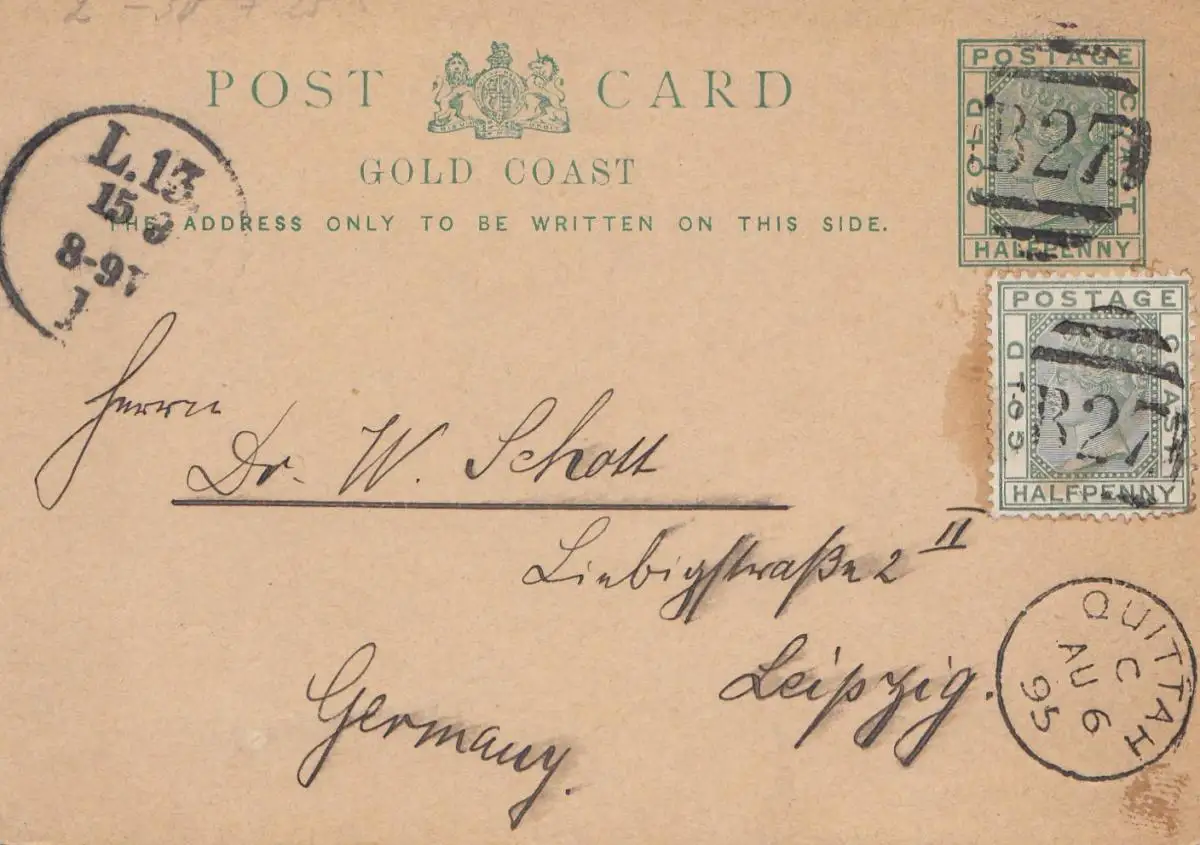 2 - 30 + 25
POST CARD
GOLD COAST
THE ADDRESS ONLY TO BE WRITTEN ON THIS SIDE.
POSTAGE
GOLD COAST
HALFPENNY
B27
POSTAGE
GOLD COAST
HALFPENNY
B27
L.13.
15 9
8-9V
1
Herrn
Dr. W. Schott
Liebigstraße 2 II
Leipzig.
Germany.
QUITTAH
C
AU 6
95